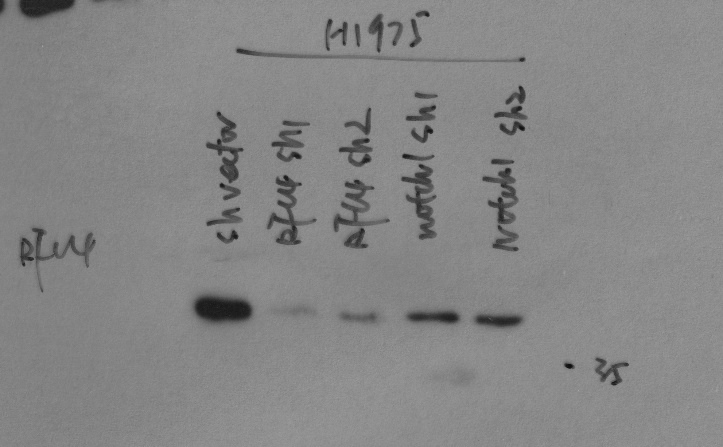 H1975
sh vector
RFC4 sh1
RFC4 sh2
notch1 sh1
Notch1 sh2
RFC4
35